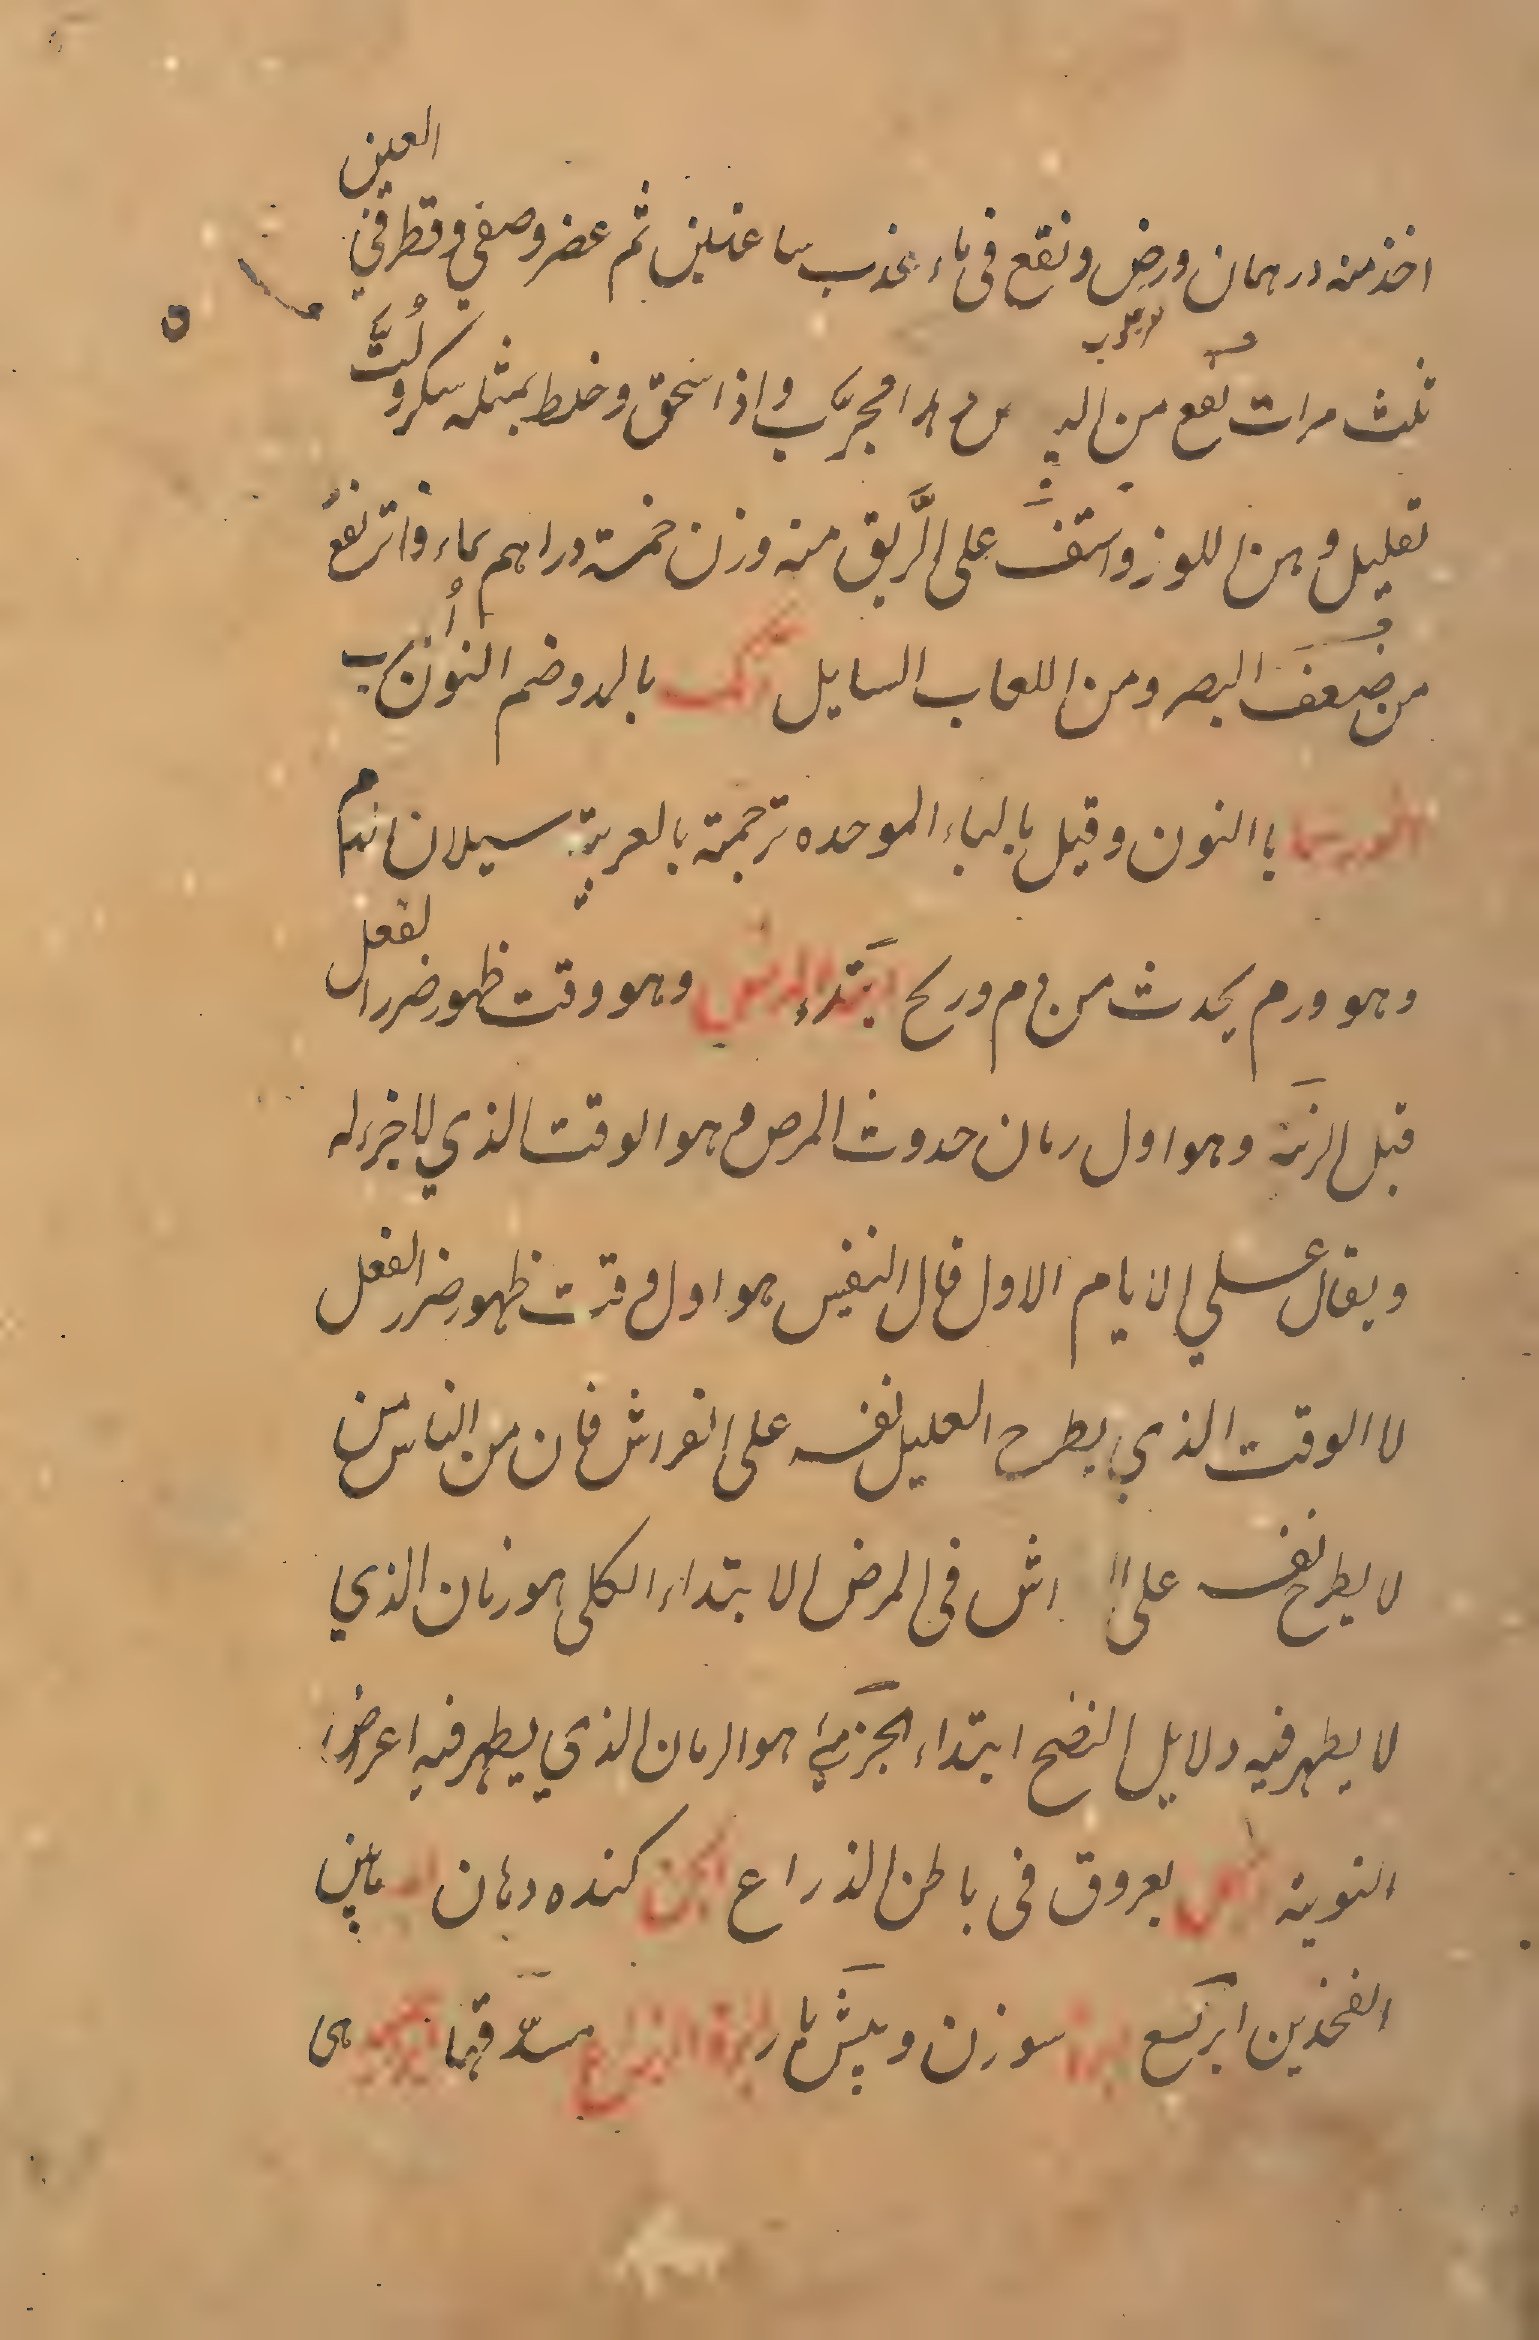 اخذ منه درهمان ورض ونقع فى ماء عذب ساعتين ثم عصر وصفي وقطر في العين
ثلث مرات نفع من مجرب واذا سحق وخلط بمثله سكر ولت
بقليل دهن اللوز واستف على الريق منه وزن خمسة دراهم بماء فاتر نفع
من ضعف البصر ومن اللعاب السايل انك بالمد وضم النون سرب
با النون وقيل بالباء الموحده ترجمة بالعربية سيلان الدم
وهو ورم يحدث من دم وريح ابتداء المرض وهو وقت ظهور ضرر الفعل
قيل انه وهو اول زمان حدوث المرض وهو الوقت الذي لا جزء له
ويقال على الايام الاول قال النفيس هو اول وقت ظهور ضرر الفعل
لا الوقت الذي يطرح العليل نفسه على الفراش فان من الناس من
لا يطرح نفسه على اش فى المرض الابتداء الكلى هو زمان الذي
لا يظهر فيه دلايل النضج ابتداء الجزئي هو الزمان الذي يظهر فيه اعراض
النوبة بعروق فى باطن الذراع ابخر كنده دهان مابين
الفخذين سوزن ونيش ابرة الذراع مستدقها هى